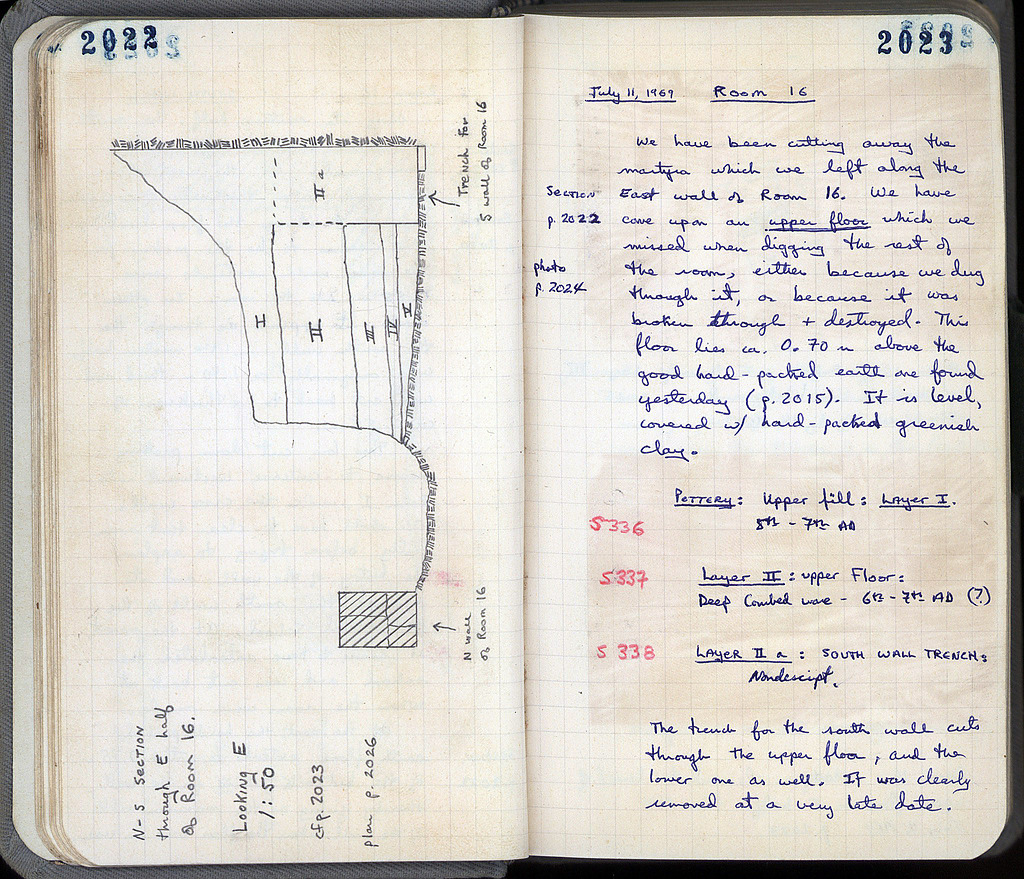 2022
N-S SECTION
through E half
of Room 16.
Looking E
1:50
cf p. 2023
plan p. 2026
I
II
III
IV
V
II a
Trench for
S wall of Room 16
N wall
of Room 16
2023
July 11, 1969 Room 16
We have been cutting away the
martyra which we left along the
Section East wall of Room 16. We have
p. 2022 come upon an upper floor which we
missed when digging the rest of
photo the room, either because we dug
p. 2024 through it, or because it was
broken through + destroyed. This
floor lies ca. 0.70 m above the
good hard-packed earth one found
yesterday (p. 2015). It is level,
covered w/ hard-packed greenish
clay.
Pottery: Upper fill: Layer I.
5336 8th - 7th AD
5337 Layer II: upper Floor:
Deep Combed ware - 6th - 7th AD (?)
5338 Layer II a: South Wall Trench:
Nondescript.
The trench for the south wall cuts
through the upper floor, and the
lower one as well. It was clearly
removed at a very late date.